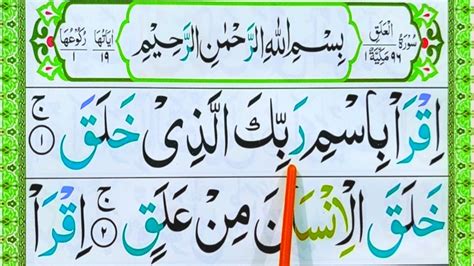 سُوْرَةُ الْعَلَقِ ٩٦ مَكِّيَّةٌ ١
بِسْمِ اللّٰهِ الرَّحْمٰنِ الرَّحِيْمِ
اٰيَاتُهَا ١٩ رُكُوْعُهَا ١
اِقْرَاْ بِاسْمِ رَبِّكَ الَّذِىْ خَلَقَ ۚ ١
خَلَقَ الْاِنْسَانَ مِنْ عَلَقٍ ۚ ٢ اِقْرَاْ